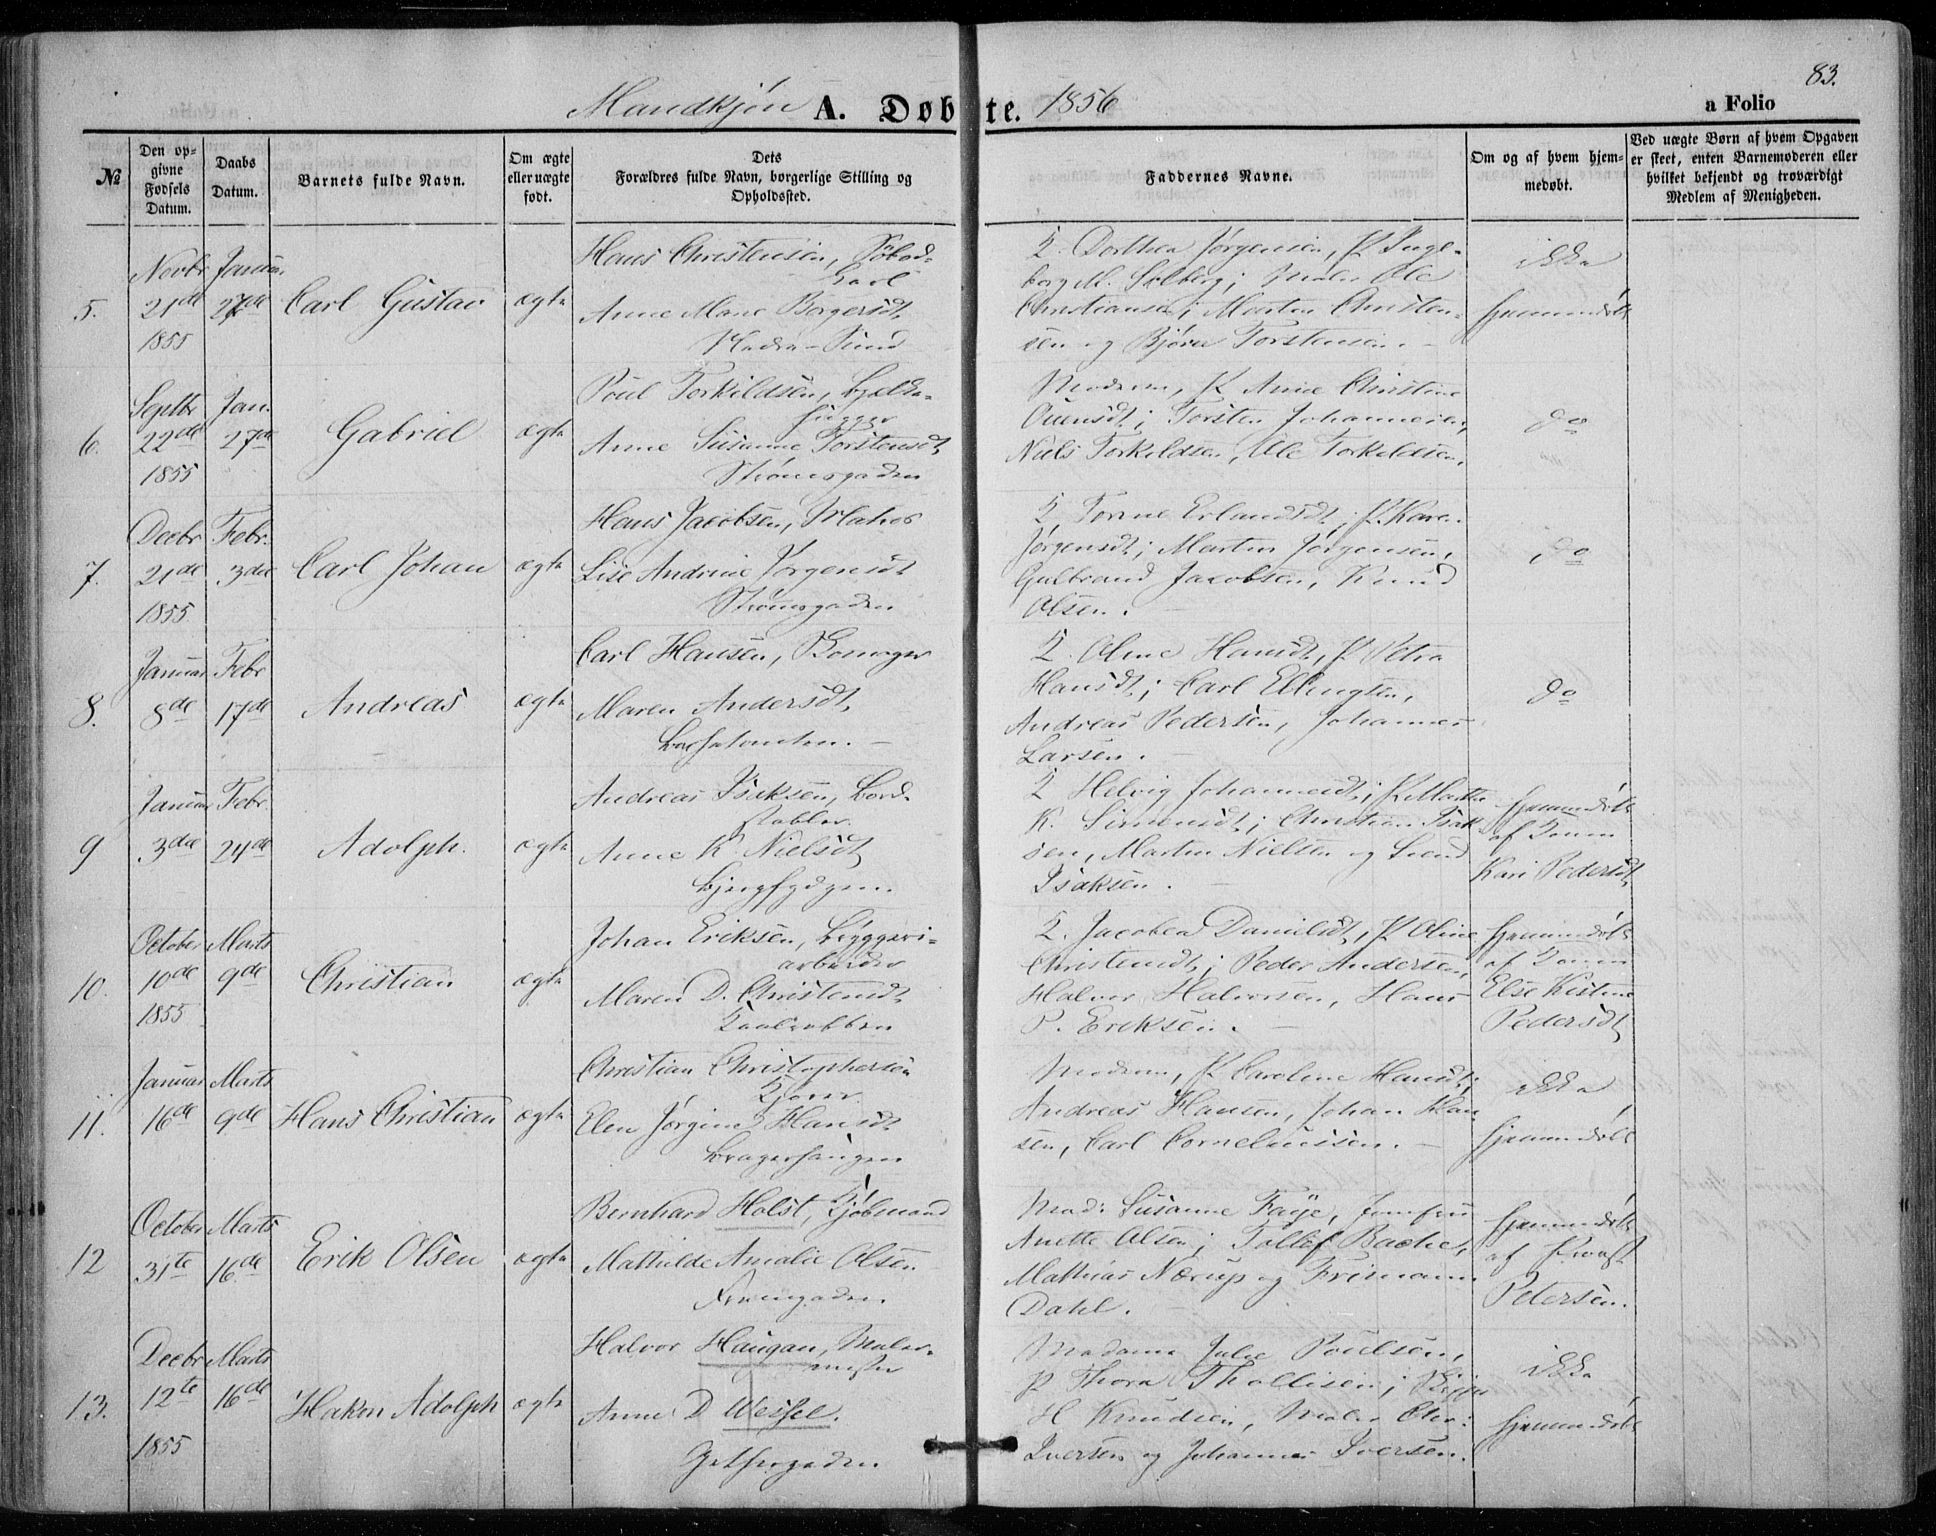 Mandkjøn A. Døbte. 1856
83.
a Folio
№
Den op-
givne
Fødsels
Datum.
Daabs
Datum.
Barnets fulde Navn.
Om ægte
eller uægte
født.
Dets
Forældres fulde Navn, borgerlige Stilling og
Opholdssted.
Faddernes Navne.
Om og af hvem hjem-
medøbt.
Ved uægte Børn af hvem Opgaven
er skeet, enten Barnemoderen eller
hvilket bekjendt og troværdigt
Medlem af Menigheden.
5.
Novbr
21de
1855
Januar
27de
Carl Gustav
ægte
Hans Christensen,
Anne Marie Borgersdt.
Dorthea Jørgensen, P. Inge-
borg M. Solberg; Maler Ole
Christiansen, Morten Christen-
sen og Bjørn Torstensen.
ikke
hjemmedøbt
6.
Septbr
22de
1855
Jan.
27de
Gabriel
ægte
Poul Torkildsen, Bjelke-
hugger
Anne Susanne Torstensdt.
Strømsgaden
Moderen, P. Anne Christine
Torsten Johannesen,
Niels Torkildsen, Ole Torkildsen.
do
7.
Decbr
21de
1855
Febr.
3die
Carl Johan
ægte
Hans Jacobsen,
Lise Andrine Jørgensdt
Strømsgaden
Erlandsdt, P. Karen
Jørgensdt; Martin Jørgensen,
Gulbrand Jacobsen, Knud
Olsen.
do
8.
Januar
8de
Febr
17de
Andreas
ægte
Carl Hansen,
Maren Andersdt,
Oline Hansdt, P. Petra
Hansdt; Carl Ellingsen,
Andreas Pedersen, Johannes
Larsen.
do
9
Januar
3die
Febr.
24de
Adolph.
ægte
Andreas Isaksen, Bord-
stabler
Anne K. Nielsdt,
Helvig Johannesdt; P. Marthe
K. Simensdt; Christian Isak-
sen, Martin Nielsen og Svend
Isaksen.
hjemmedøbt
af Konen
Kari Pedersdt,
10.
October
10de
1855
Marts
9de
Christian
ægte
Johan Eriksen, Bryggeri-
arbeider
Maren D. Christensdt.
Jacobea Danielsdt, P. Oline
Christensdt; Peder Andersen,
Halvor Halvorsen, Hans
P. Eriksen.
hjemmedøbt
af Konen
Else Kistine
Pedersdt,
11.
Januar
16de
Marts
9de
Hans Christian
ægte
Christian Christophersen
Elen Jørgine Hansdt
Moderen, P. Caroline Hansdt;
Andreas Hansen, Johan Han-
sen, Carl Corneliussen.
ikke
hjemmedøbt
12
October
31te
Marts
16de
Erik Olsen
ægte
Bernhard Holst, Kjøbmand
Mathilde Amalie Olsen
Mad: Susanne Faye, Jomfru
Anette Olsen; Tollef Bache,
Mathias Nærup og Frimann
Dahl.
hjemmedøbt
af Provst
Petersen.
13.
Decbr
12te
1855
Marts
16de
Hakon Adolph
ægte
Halvor Haugan, Maler-
mester
Anne D. Wessel.
Madame Julie Poulsen,
P. Thora Thollisen;
H. Knudsen, Maler Chr:
Iversen og Johannes Iversen.
ikke
hjemmedøbt